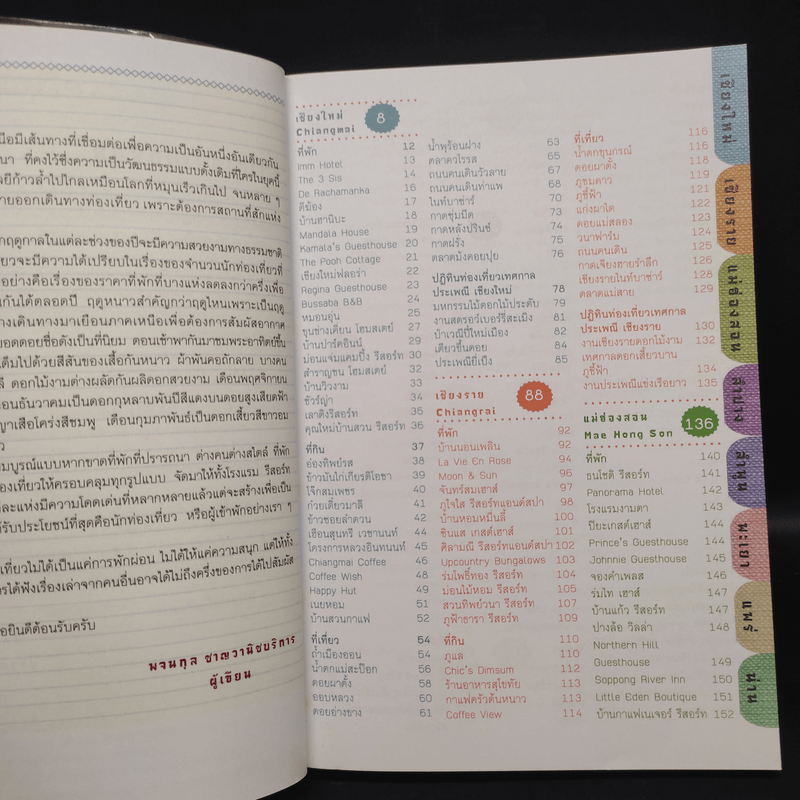 นือมีเส้นทางที่เชื่อมต่อเพื่อความเป็นอันหนึ่งอันเดียวกัน
นา ที่คงไว้ซึ่งความเป็นวัฒนธรรมแบบดั้งเดิมที่ใครในยุคนี้
ลยีก้าวล้ำไปไกลเหมือนโลกที่หมุนเร็วเกินไป จนหลาย ๆ
ายออกเดินทางท่องเที่ยว เพราะต้องการสถานที่สักแห่ง
กฤดูกาลในแต่ละช่วงของปีจะมีความสวยงามทางธรรมชาติ
ยวจะมีความได้เปรียบในเรื่องของจำนวนนักท่องเที่ยวที่
อย่างคือเรื่องของราคาที่พักที่บางแห่งลดลงกว่าครึ่งเพื่อ
กันได้ตลอดปี ฤดูหนาวสำคัญกว่าฤดูไหนเพราะเป็นฤดู
างเดินทางมาเยือนภาคเหนือเพื่อต้องการสัมผัสอากาศ
ยอดดอยชื่อดังเป็นที่นิยม ตอนเช้าพากันมาชมพระอาทิตย์ขึ้น
เต็มไปด้วยสีสันของเสื้อกันหนาว ผ้าพันคอถักลาย บางคน
ลี ดอกไม้งามต่างผลัดกันผลิดอกสวยงาม เดือนพฤศจิกายน
อนธันวาคมเป็นดอกกุหลาบพันปีสีแดงบนดอยสูงเสียดฟ้า
ญาเสือโคร่งสีชมพู เดือนกุมภาพันธ์เป็นดอกเสี้ยวสีขาวอม
ว
มบูรณ์แบบหากขาดที่พักที่ปรารถนา ต่างคนต่างสไตล์ ที่พัก
องเที่ยวให้ครอบคลุมทุกรูปแบบ จัดมาให้ทั้งโรงแรม รีสอร์ท
ละแห่งมีความโดดเด่นที่หลากหลายแต่จะสร้างเพื่อเป็น
ด้รับประโยชน์ที่สุดคือนักท่องเที่ยว หรือผู้เข้าพักอย่างเรา ๆ
เที่ยวไม่ได้เป็นแค่การพักผ่อน ไม่ได้ให้แค่ความสนุก แต่ให้ทั้ง
ารได้ฟังเรื่องเล่าจากคนอื่นอาจได้ไม่ถึงครึ่งของการได้ไปสัมผัส
อยินดีต้อนรับครับ
พจนกุล ชาญวานิชบริการ
ผู้เขียน
เชียงใหม่ 8
Chiangmai
ที่พัก 12
Imm Hotel 13
The 3 Sis 14
De Rachamanka 16
ดีข้อง 17
บ้านฮานิบะ 18
Mandala House 19
Kamala's Guesthouse 20
The Pooh Cottage 21
เชียงใหม่ฟลอร่า 22
Regina Guesthouse 23
Bussaba B&B 24
หมอนอุ่น 25
ขุนช่างเคี่ยน โฮมสเตย์ 27
บ้านปาร์คอินน์ 29
ม่อนแจ่มแคมปิ้ง รีสอร์ท 30
สำราญชน โฮมสเตย์ 32
บ้านวิวงาม 33
ชัวร์ญ่า 34
เลาติงรีสอร์ท 35
คุณใหม่บ้านสวน รีสอร์ท 36
ที่กิน 37
ฮ่องทิพย์รส 38
ข้าวมันไก่เกียรติโอชา 39
โจ๊กสมเพชร 40
ก๋วยเตี๋ยวมาลี 41
ข้าวซอยลำดวน 42
เฮือนสุนทรี เวชานนท์ 43
โครงการหลวงอินทนนท์ 45
Chiangmai Coffee 46
Coffee Wish 48
Happy Hut 49
เนยหอม 51
บ้านสวนกาแฟ 52
ที่เที่ยว 54
ถ้ำเมืองออน 54
น้ำตกแม่สะป๊อก 56
ดอยผาตั้ง 58
ออบหลวง 60
ดอยอ่างขาง 61
น้ำพุร้อนฝาง 63
ตลาดวโรรส 65
ถนนคนเดินวัวลาย 67
ถนนคนเดินท่าแพ 68
ไนท์บาซ่าร์ 70
กาดชุ่มมืด 73
กาดหลังปรินซ์ 74
กาดฝรั่ง 75
ตลาดม้งดอยปุย 76
ปฏิทินท่องเที่ยวเทศกาล
ประเพณี เชียงใหม่ 78
มหกรรมไม้ดอกไม้ประดับ 79
งานสตรอว์เบอร์รีสะเมิง 81
ป๋าเวณีปี๋ใหม่เมือง 82
เตียวขึ้นดอย 84
ประเพณียี่เป็ง 85
เชียงราย 88
Chiangrai
ที่พัก 92
บ้านนอนเพลิน 92
La Vie En Rose 94
Moon & Sun 96
จันทร์สมเฮาส์ 97
ภูใจใส รีสอร์ทแอนด์สปา 98
บ้านหอมหมื่นลี้ 100
ชินแส เกสต์เฮาส์ 101
ศิลามณี รีสอร์ทแอนด์สปา 102
Upcountry Bungalows 103
ร่มโพธิ์ทอง รีสอร์ท 104
ม่อนไม้หอม รีสอร์ท 105
สวนทิพย์วนา รีสอร์ท 106
ภูฟ้าธารา รีสอร์ท 109
ที่กิน 110
ภูแล 110
Chic's Dimsum 112
ร้านอาหารสุโขทัย 113
กาแฟครัวต้นหนาว 113
Coffee View 114
ที่เที่ยว 116
น้ำตกขุนกรณ์ 116
ดอยผาตั้ง 118
ภูชมดาว 119
ภูชี้ฟ้า 121
แก่งผาได 122
ดอยแม่สลอง 123
วนาฟาร์ม 124
ถนนคนเดิน 126
กาดเจียงฮายรำลึก 126
เชียงรายไนท์บาซ่าร์ 128
ตลาดแม่สาย 129
ปฏิทินท่องเที่ยวเทศกาล
ประเพณี เชียงราย 130
งานเชียงรายดอกไม้งาม 132
เทศกาลดอกเสี้ยวบาน
ภูชี้ฟ้า 134
งานประเพณีแข่งเรือยาว 135
แม่ฮ่องสอน 136
Mae Hong Son
ที่พัก 140
ธนโชติ รีสอร์ท 141
Panorama Hotel 142
โรงแรมงามตา 143
ปิยะเกสต์เฮาส์ 144
Prince's Guesthouse 144
Johnnie Guesthouse 145
จองคำเพลส 146
ร่มไท เฮาส์ 146
บ้านแก้ว รีสอร์ท 147
ปางล้อ วิลล่า 148
Northern Hill
Guesthouse 149
Soppong River Inn 150
Little Eden Boutique 151
บ้านกาแฟเนเจอร์ รีสอร์ท 152
เชียงใหม่
เชียงราย
แม่ฮ่องสอน
ลำปาง
ลำพูน
พะเยา
แพร่
น่าน